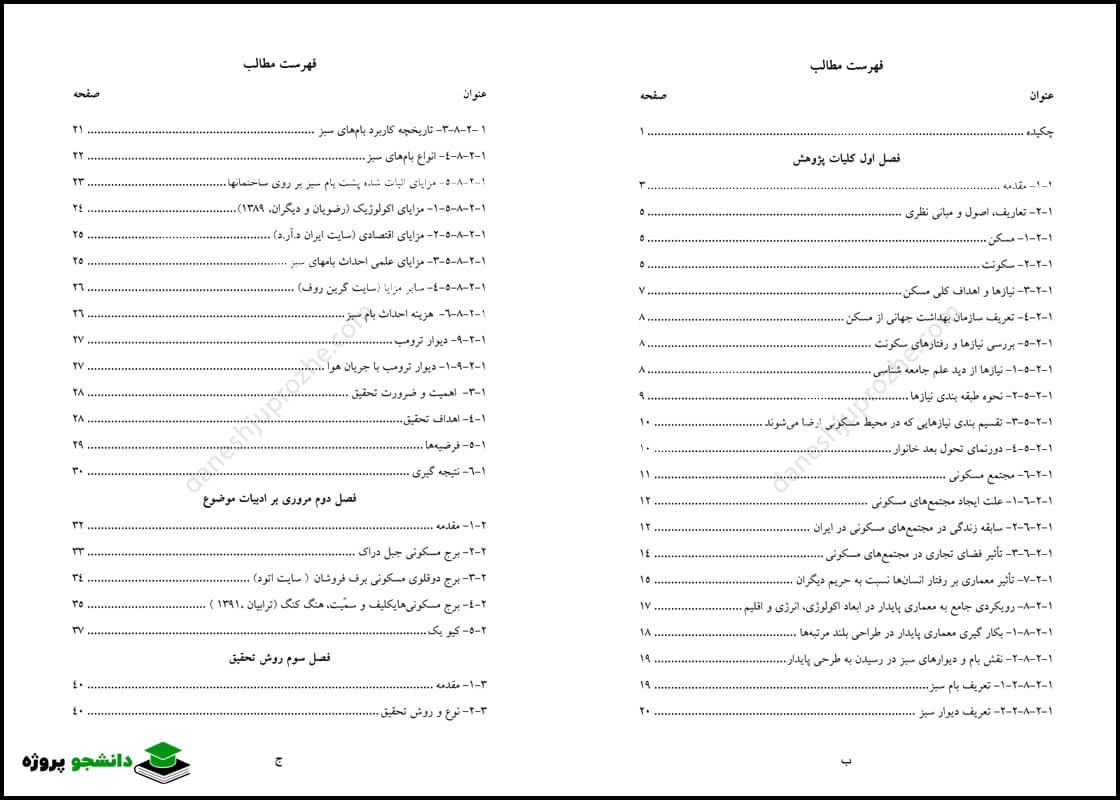 فهرست مطالب
عنوان صفحه
چکیده ۱
فصل اول کلیات پژوهش
۱-۱- مقدمه ۳
۱-۲- تعاریف، اصول و مبانی نظری ۵
۱-۲-۱- مسکن ۵
۱-۲-۲- سکونت ۵
۱-۲-۳- نیازها و اهداف کلی مسکن ۷
۱-۲-۴- تعریف سازمان بهداشت جهانی از مسکن ۸
۱-۲-۵- بررسی نیازها و رفتارهای سکونت ۸
۱-۲-۵-۱- نیازها از دید علم جامعه شناسی ۸
۱-۲-۵-۲- نحوه طبقه بندی نیازها ۹
۱-۲-۵-۳- تقسیم بندی نیازهایی که در محیط مسکونی ارضا می‌شوند ۱۰
۱-۲-۵-۴- دورنمای تحول بعد خانوار ۱۰
۱-۲-۶- مجتمع مسکونی ۱۱
۱-۲-۶-۱- علت ایجاد مجتمع‌های مسکونی ۱۲
۱-۲-۶-۲- سابقه زندگی در مجتمع‌های مسکونی در ایران ۱۲
۱-۲-۶-۳- تأثیر فضای تجاری در مجتمع‌های مسکونی ۱۴
۱-۲-۷- تأثیر معماری بر رفتار انسان‌ها نسبت به حریم دیگران ۱۵
۱-۲-۸- رویکردی جامع به معماری پایدار در ابعاد اکولوژی، انرژی و اقلیم ۱۷
۱-۲-۸-۱- بکار گیری معماری پایدار در طراحی بلند مرتبه‌ها ۱۸
۱-۲-۸-۲- نقش بام و دیوارهای سبز در رسیدن به طرحی پایدار ۱۹
۱-۲-۸-۲-۱- تعریف بام سبز ۱۹
۱-۲-۸-۲-۲- تعریف دیوار سبز ۲۰
ب
فهرست مطالب
عنوان صفحه
۱-۲-۸-۳- تاریخچه کاربرد بام‌های سبز ۲۱
۱-۲-۸-۴- انواع بام‌های سبز ۲۲
۱-۲-۸-۵- مزایای اثبات شده پشت بام سبز بر روی ساختمانها ۲۳
۱-۲-۸-۵-۱- مزایای اکولوژیک (رضویان و دیگران، ۱۳۸۹) ۲۴
۱-۲-۸-۵-۲- مزایای اقتصادی (سایت ایران د.آر.د) ۲۵
۱-۲-۸-۵-۳- مزایای علمی احداث بامهای سبز ۲۵
۱-۲-۸-۵-۴- سایر مزایا (سایت گرین روف) ۲۶
۱-۲-۸-۶- هزینه احداث بام سبز ۲۶
۱-۲-۹- دیوار ترومب ۲۷
۱-۲-۹-۱- دیوار ترومب با جریان هوا ۲۷
۱-۳- اهمیت و ضرورت تحقیق ۲۸
۱-۴- اهداف تحقیق ۲۸
۱-۵- فرضیه‌ها ۲۹
۱-۶- نتیجه گیری ۳۰
فصل دوم مروری بر ادبیات موضوع
۲-۱- مقدمه ۳۲
۲-۲- برج مسکونی جبل دراک ۳۳
۲-۳- برج دوقلوی مسکونی برف فروشان ( سایت اتود) ۳۴
۲-۴- برج مسکونی‌هایکلیف و سمّیت، هنگ کنگ (ترابیان ،۱۳۹۱ ) ۳۵
۲-۵- کیو یک ۳۷
فصل سوم روش تحقیق
۳-۱- مقدمه ۴۰
۳-۲- نوع و روش تحقیق ۴۰
ج
دانشجو پروژه
daneshjuprozhe.com
daneshjuprozhe.com